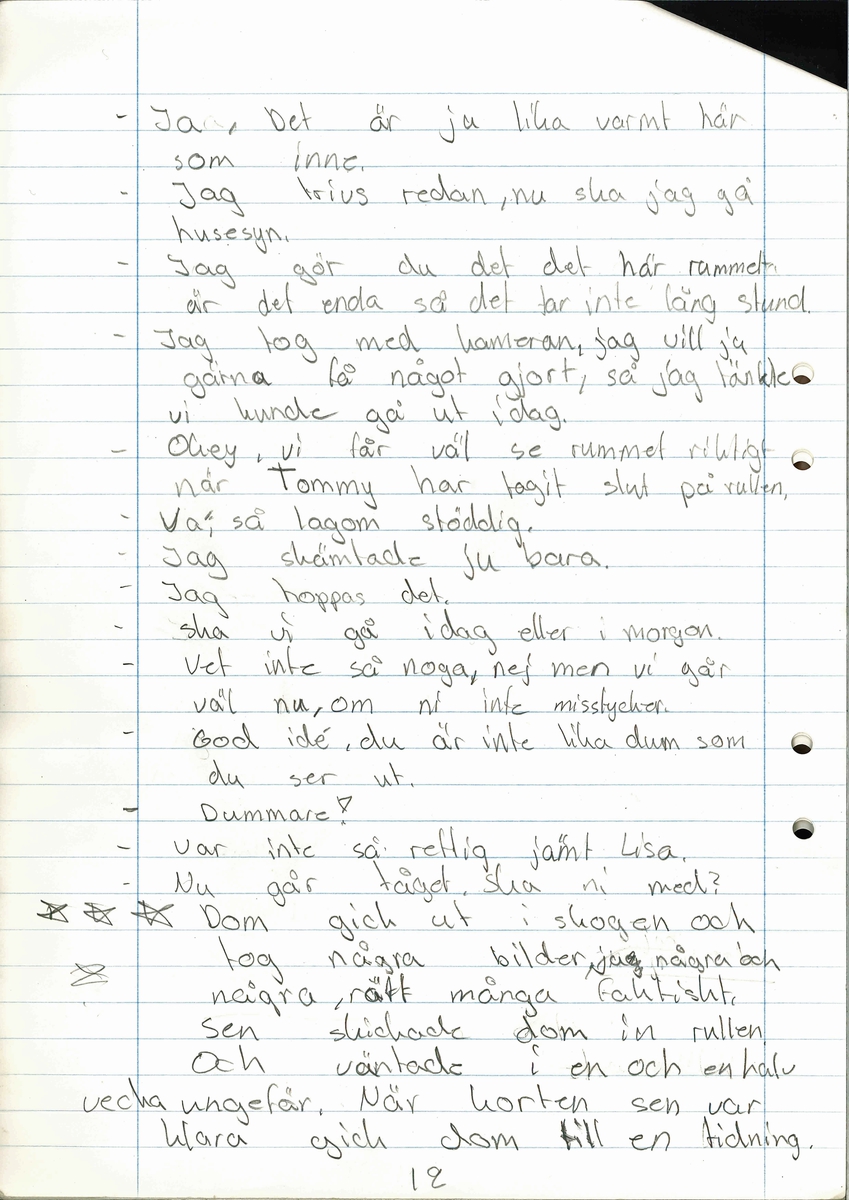 - Ja, Det är ju lika varmt här
som inne.
- Jag trivs redan, nu ska jag gå
husesyn.
- Jag gör du det det här rummet
är det enda så det tar inte lång stund.
- Jag tog med kameran, jag vill ju
gärna få något gjort, så jag tänkte
vi kunde gå ut idag.
- Okey, vi får väl se rummet riktigt
när Tommy har tagit slut på rullen,
- Va, så lagom stöddig.
- Jag skämtade ju bara.
- Jag hoppas det.
- ska vi gå idag eller i morgon.
- Vet inte så noga, nej men vi går
väl nu, om ni inte misstycker.
- God idé, du är inte lika dum som
du ser ut.
- Dummare!
- Var inte så rettig jämt Lisa.
- Nu går tåget, ska ni med?
Dom gick ut i skogen och
tog några bilder, jag några och
några, rätt många faktiskt.
Sen skickade dom in rullen
Och väntade i en och en halv
vecka ungefär. När korten sen var
klara gick dom till en tidning.
12